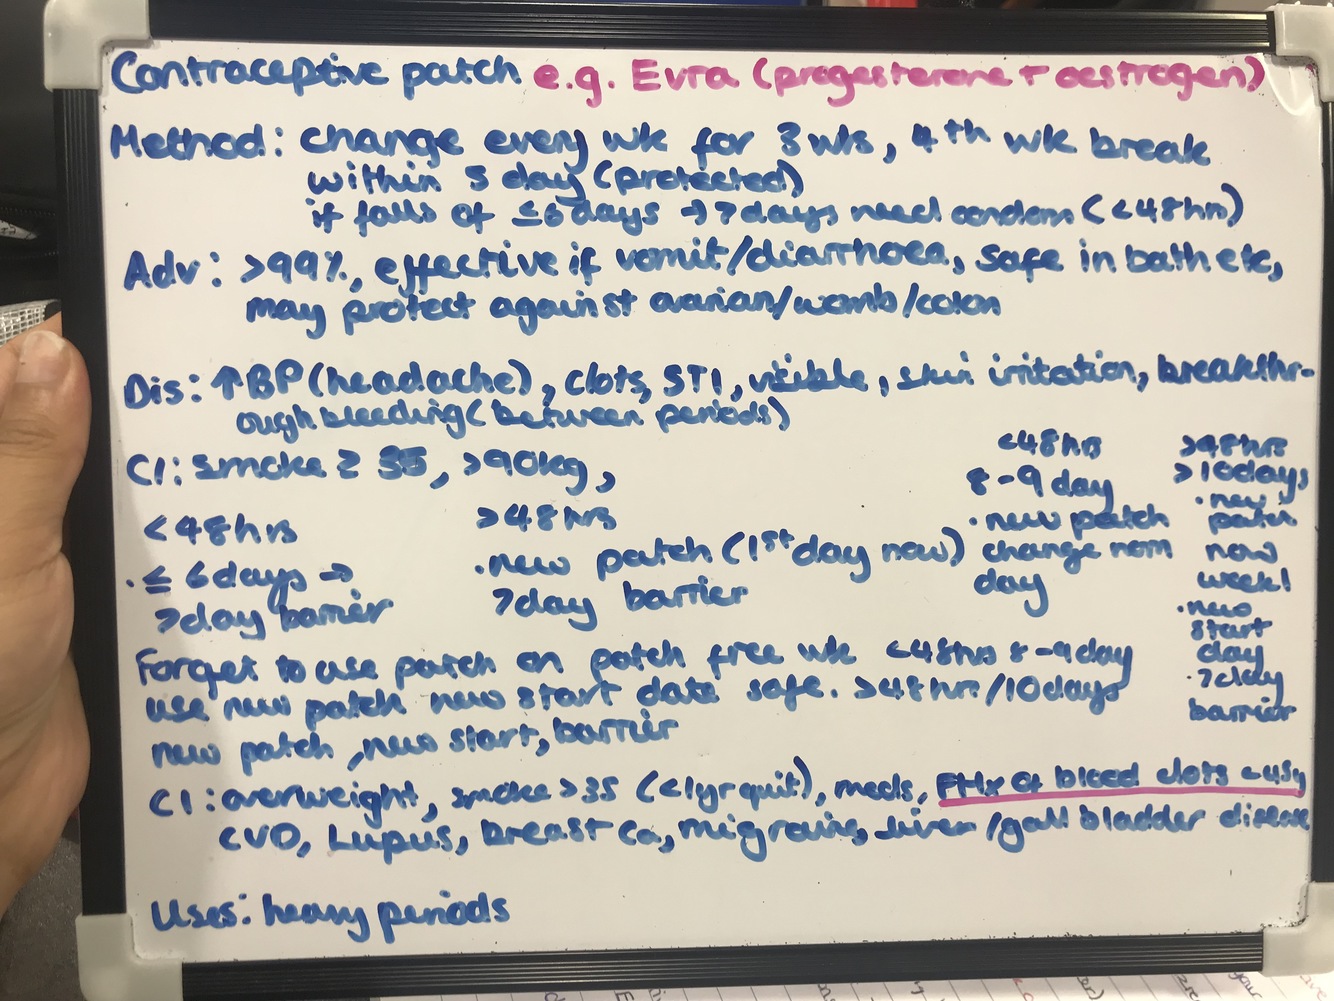 Contraceptive patch e.g. Evra (progesterone + oestrogen)
Method: change every wk for 3 wks, 4th wk break
within 5 day (protected)
if falls of ≤6 days → 7 days need condom (<48hr)
Adv: >99%, effective if vomit/diarrhoea, safe in bath etc,
may protect against ovarian/womb/colon
Dis: ↑BP (headache), clots, STI, visible, skin irritation, breakthr-
ough bleeding (between periods)
CI: smoke ≥ 35, >90kg,
<48hrs
· ≤ 6 days →
7day barrier
>48hrs
· new patch (1st day now)
7day barrier
<48hrs
8-9 day
· new patch
change norm
day
>48hrs
>10days
· new
patch
now
week!
· new
start
day
· 7day
barrier
Forget to use patch on patch free wk <48hrs 8-9day
use new patch new start date safe. >48hr/10days
new patch, new start, barrier
CI: overweight, smoke >35 (<1yr quit), meds, FHx of blood clots <45y
CVD, Lupus, breast Ca, migraine, liver/gall bladder disease
Uses: heavy periods